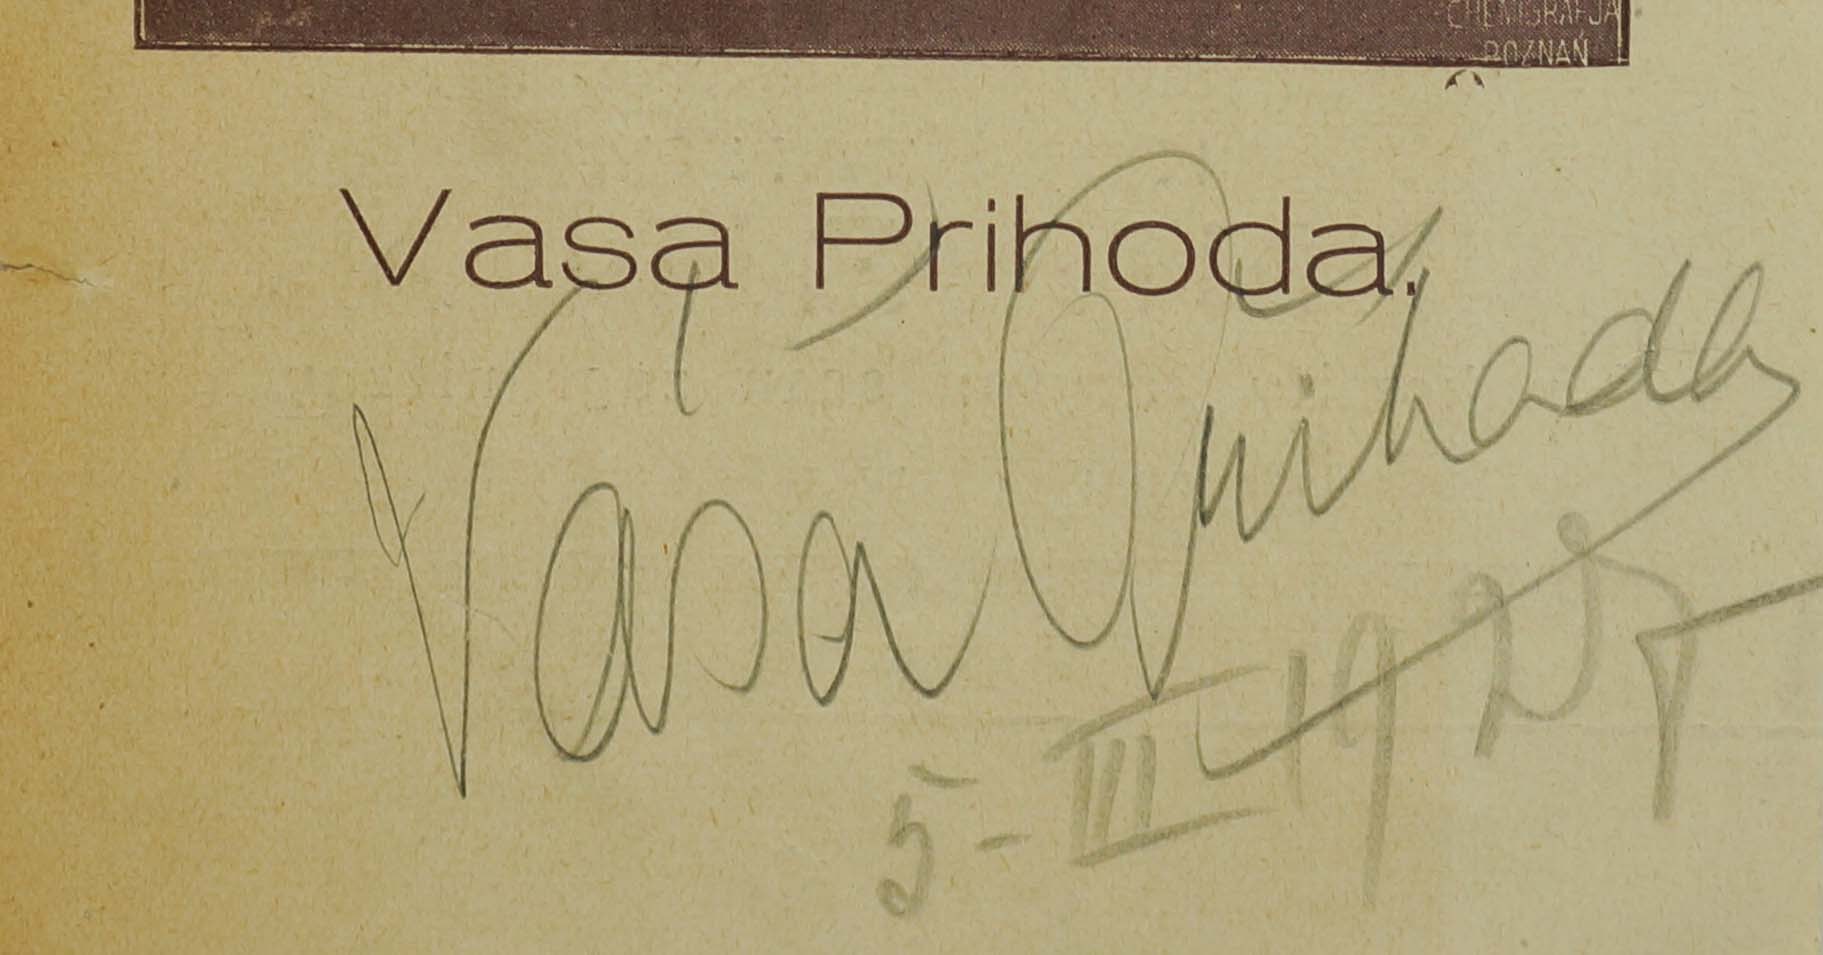 CHEMIGRAFJA
POZNAŃ
Vasa Prihoda.
Váša Příhoda
5-III-1927